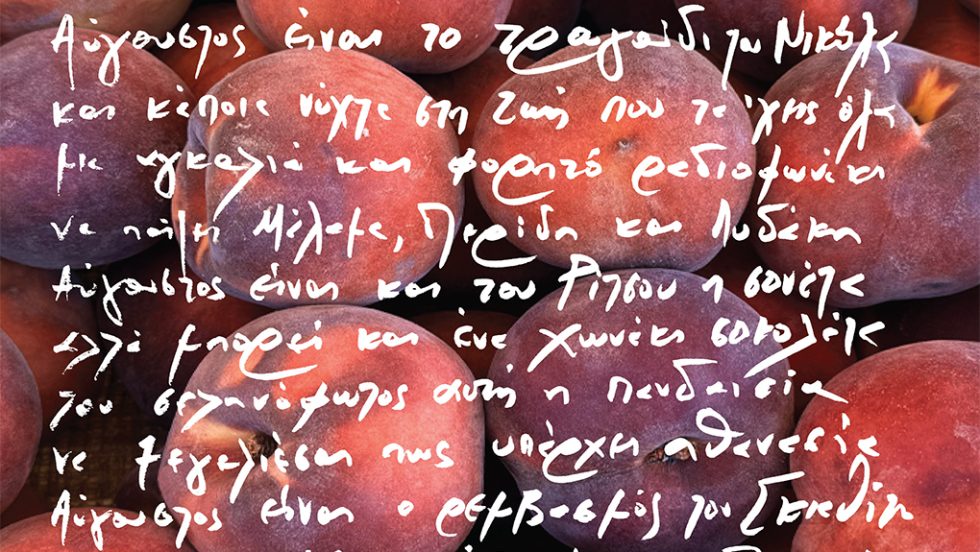 Αύγουστος είναι το τραγούδι του Νικόλα
και κάποια νύχτα στη ζωή που τα 'χεις όλα
μια αγκαλιά και φορητό ραδιοφωνάκι
να παίζει Μάλαμα, Περίδη και Λυδάκη
Αύγουστος είναι και του Ρίτσου η σονάτα
αλλά μπορεί και ένα χωνάκι σοκολάτα
του σεληνόφωτος αυτή η πανδαισία
να πως υπάρχει αθανασία
Αύγουστος είναι ο ρεμβασμός του